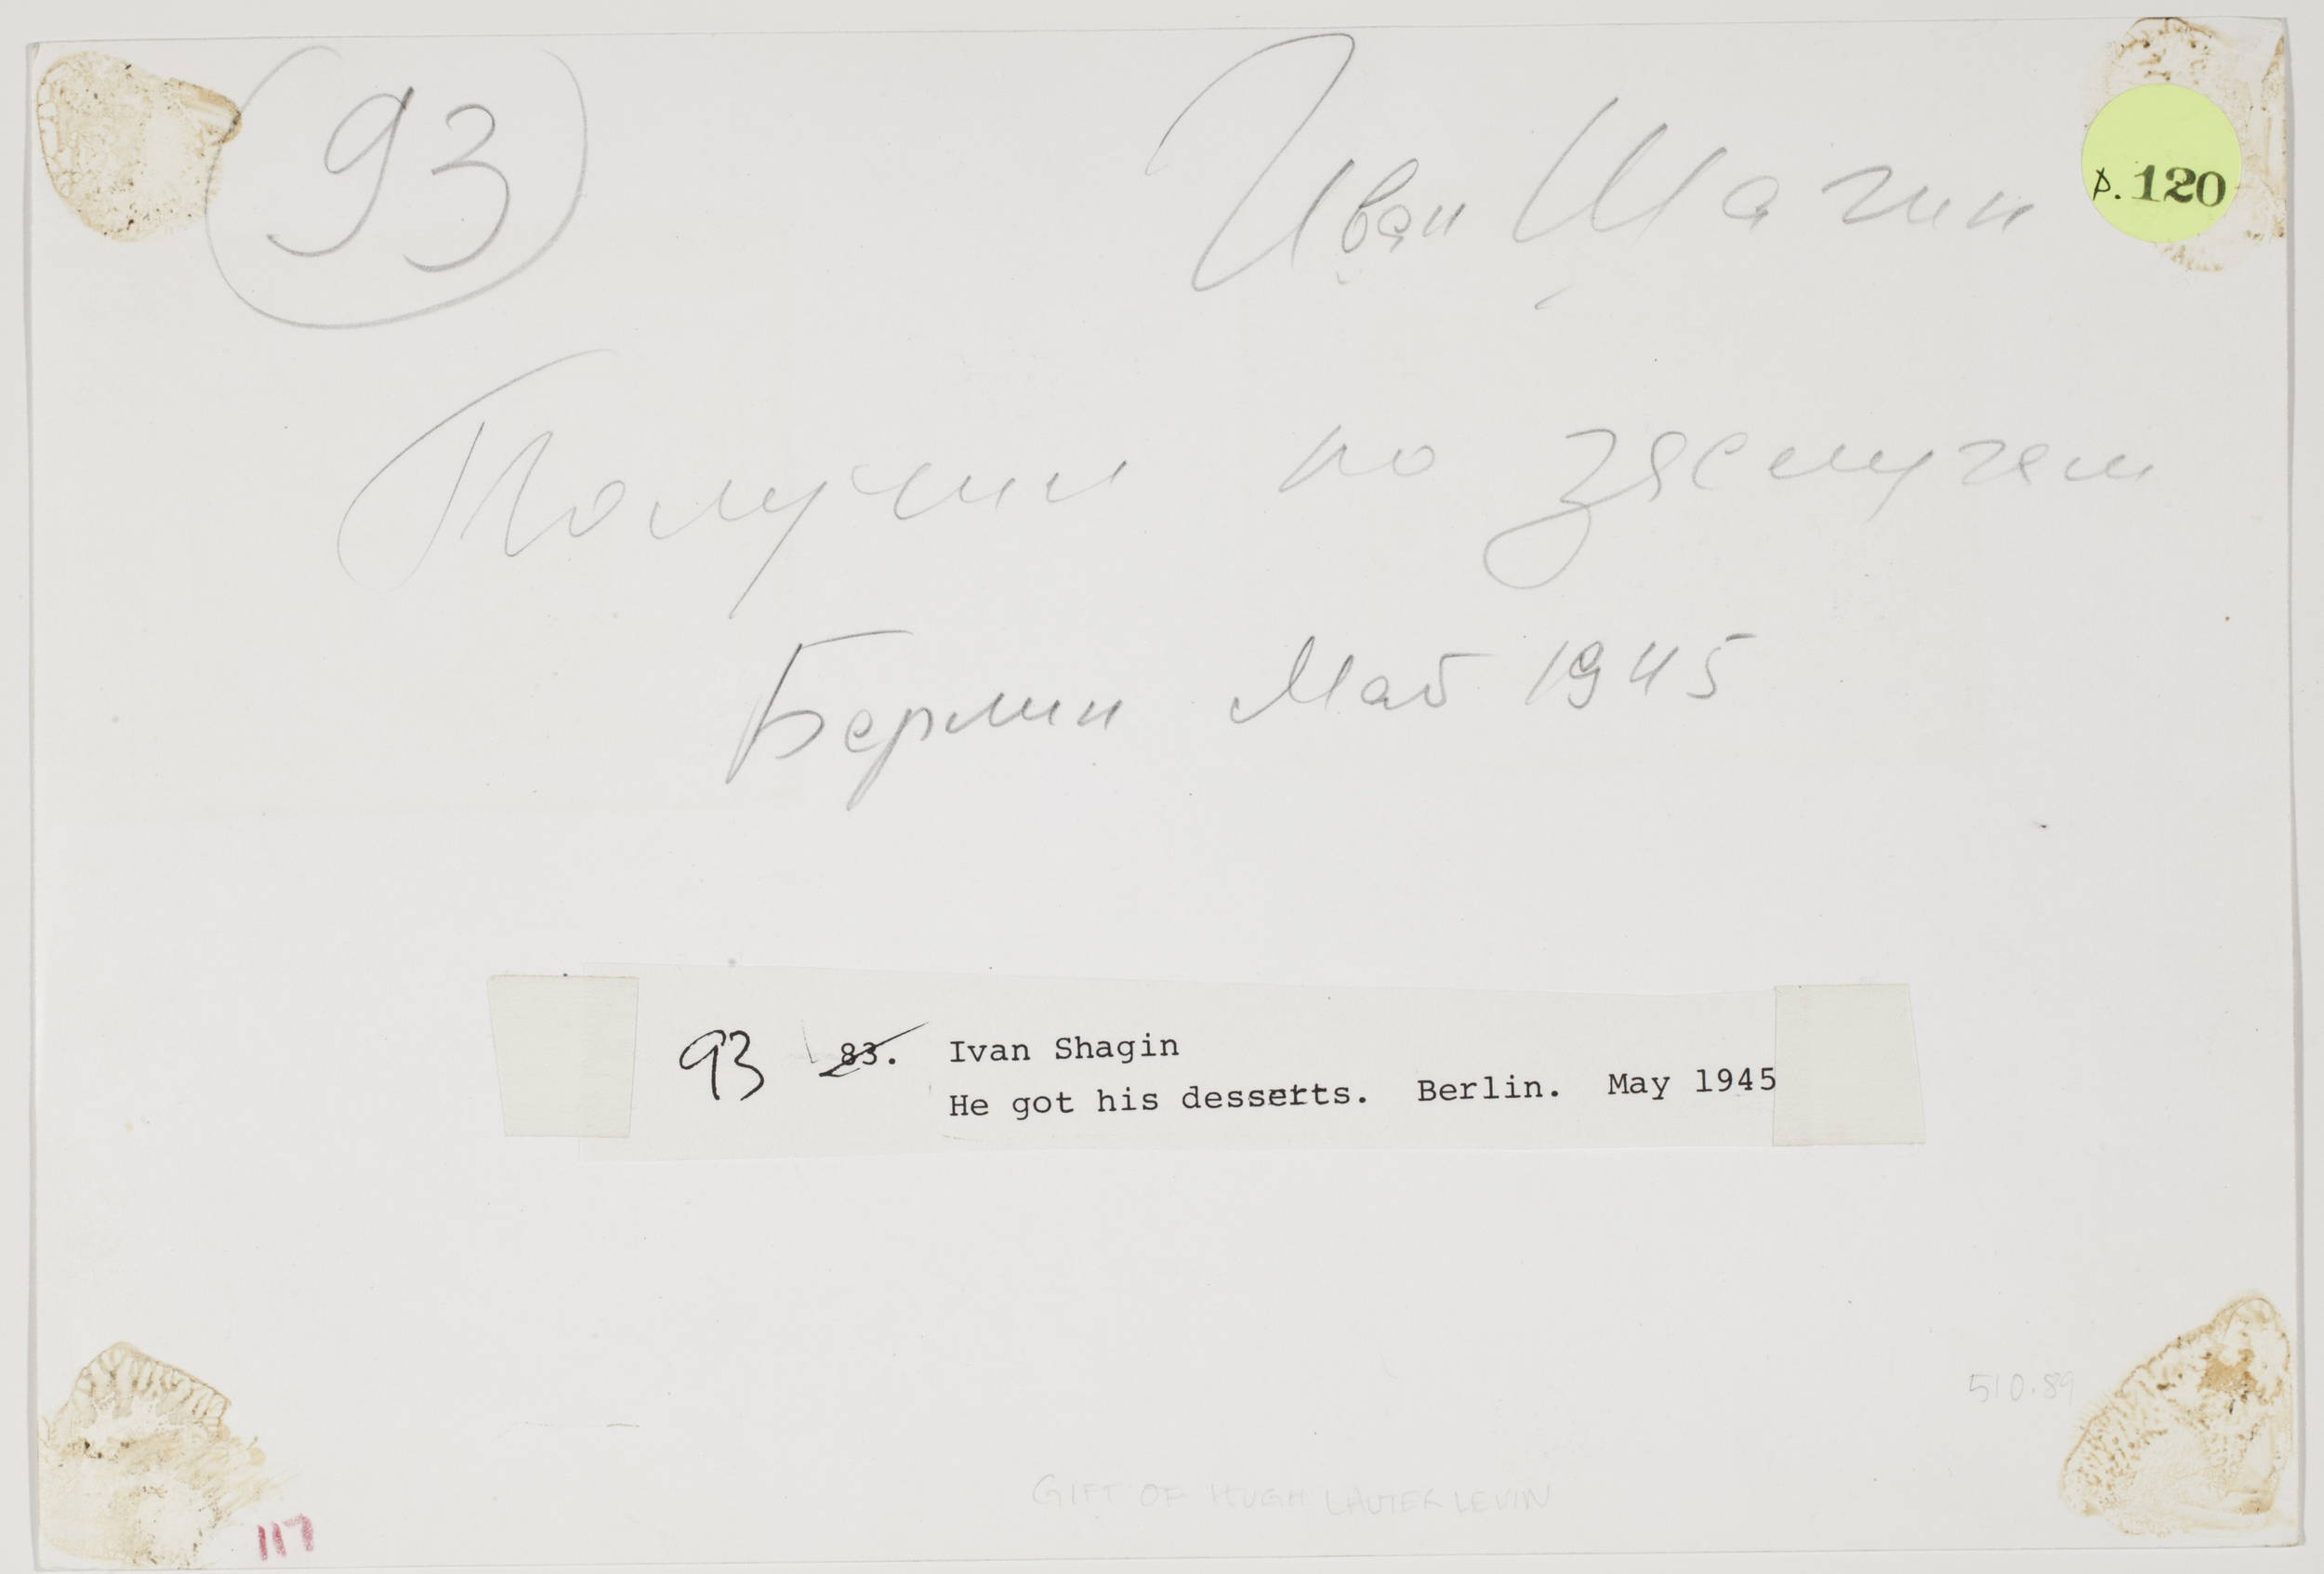 93
Иван Шагин
p. 120
Получил по заслугам
Берлин Май 1945
93 83. Ivan Shagin
He got his desserts. Berlin. May 1945
510.89
GIFT OF HUGH LAUTER LEVIN
117